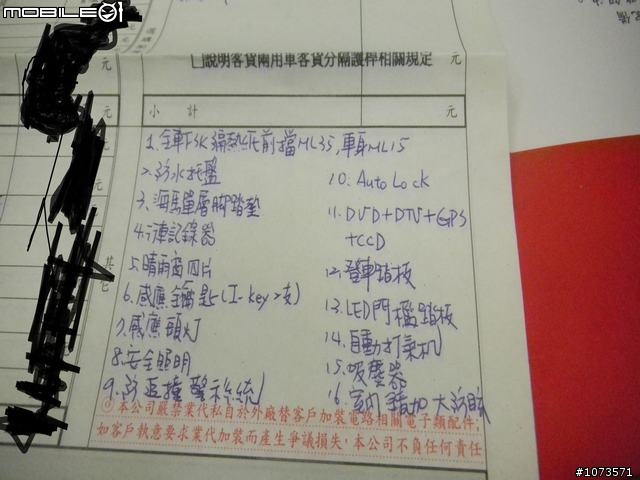 MOBILE01
元
元
元
元
其它
□說明客貨兩用車客貨分隔護桿相關規定
元
小 計
元
1.全車FSK隔熱紙前擋ML35,車身ML15
2.防水托盤
3.海馬單層腳踏墊
4.行車記錄器
5.晴雨窗四片
6.感應鑰匙(I-key×2支)
7.感應頭灯
8.安全照明
9.防追撞警示系統
10.Auto Lock
11.DVD+DTV+GPS
+CCD
12.登車踏板
13.LED門檻踏板
14.自動打氣机
15.吸塵器
16.室內 大
①本公司嚴禁業代私自於外廠替客戶加裝電路相關電子類配件,
如客戶執意要求業代加裝而產生爭議損失,本公司不負任何責任
#1073571